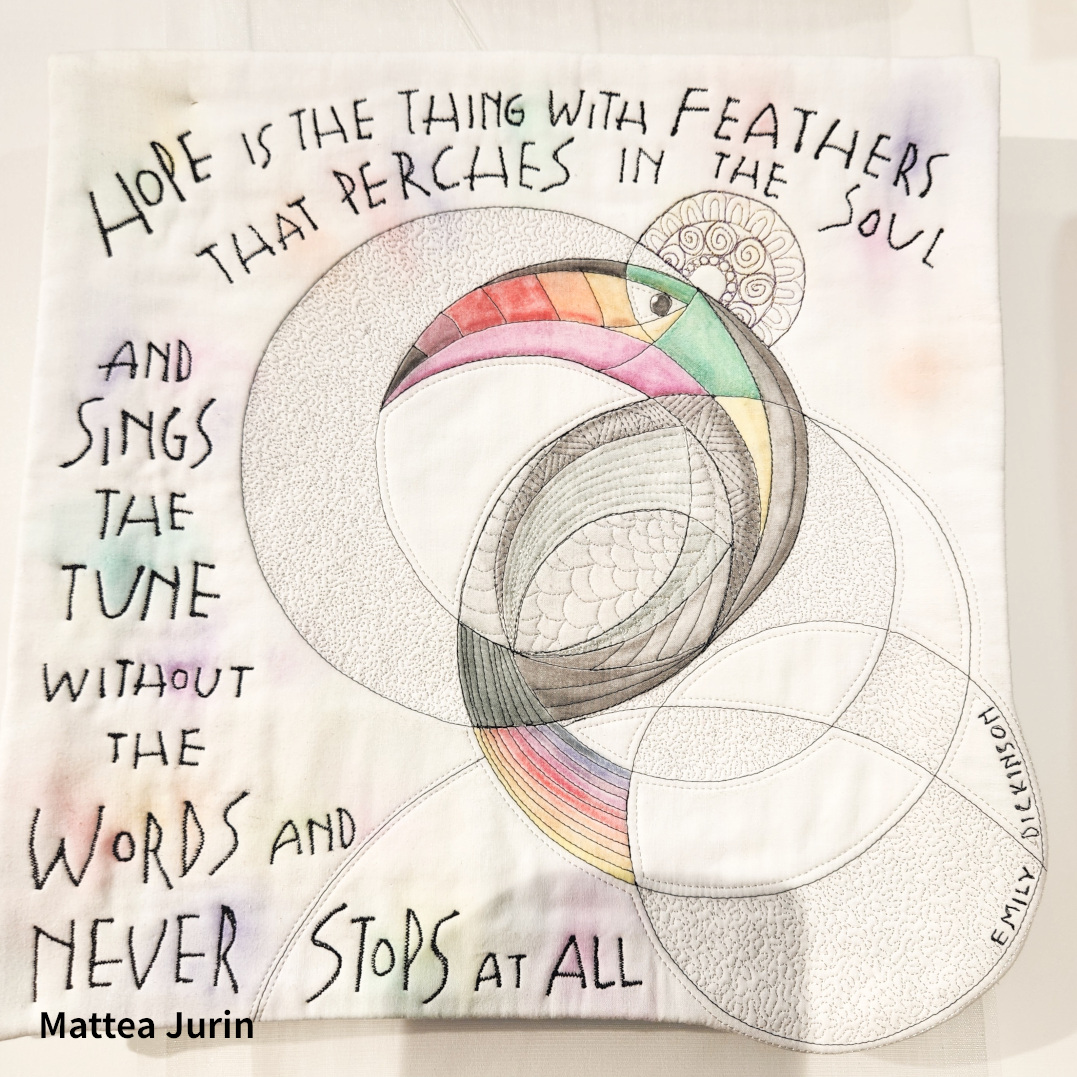 HOPE IS THE THING WITH FEATHERS
THAT PERCHES IN THE SOUL
AND
SINGS
THE
TUNE
WITHOUT
THE
WORDS AND
NEVER STOPS AT ALL
EMILY DICKINSON
Mattea Jurin